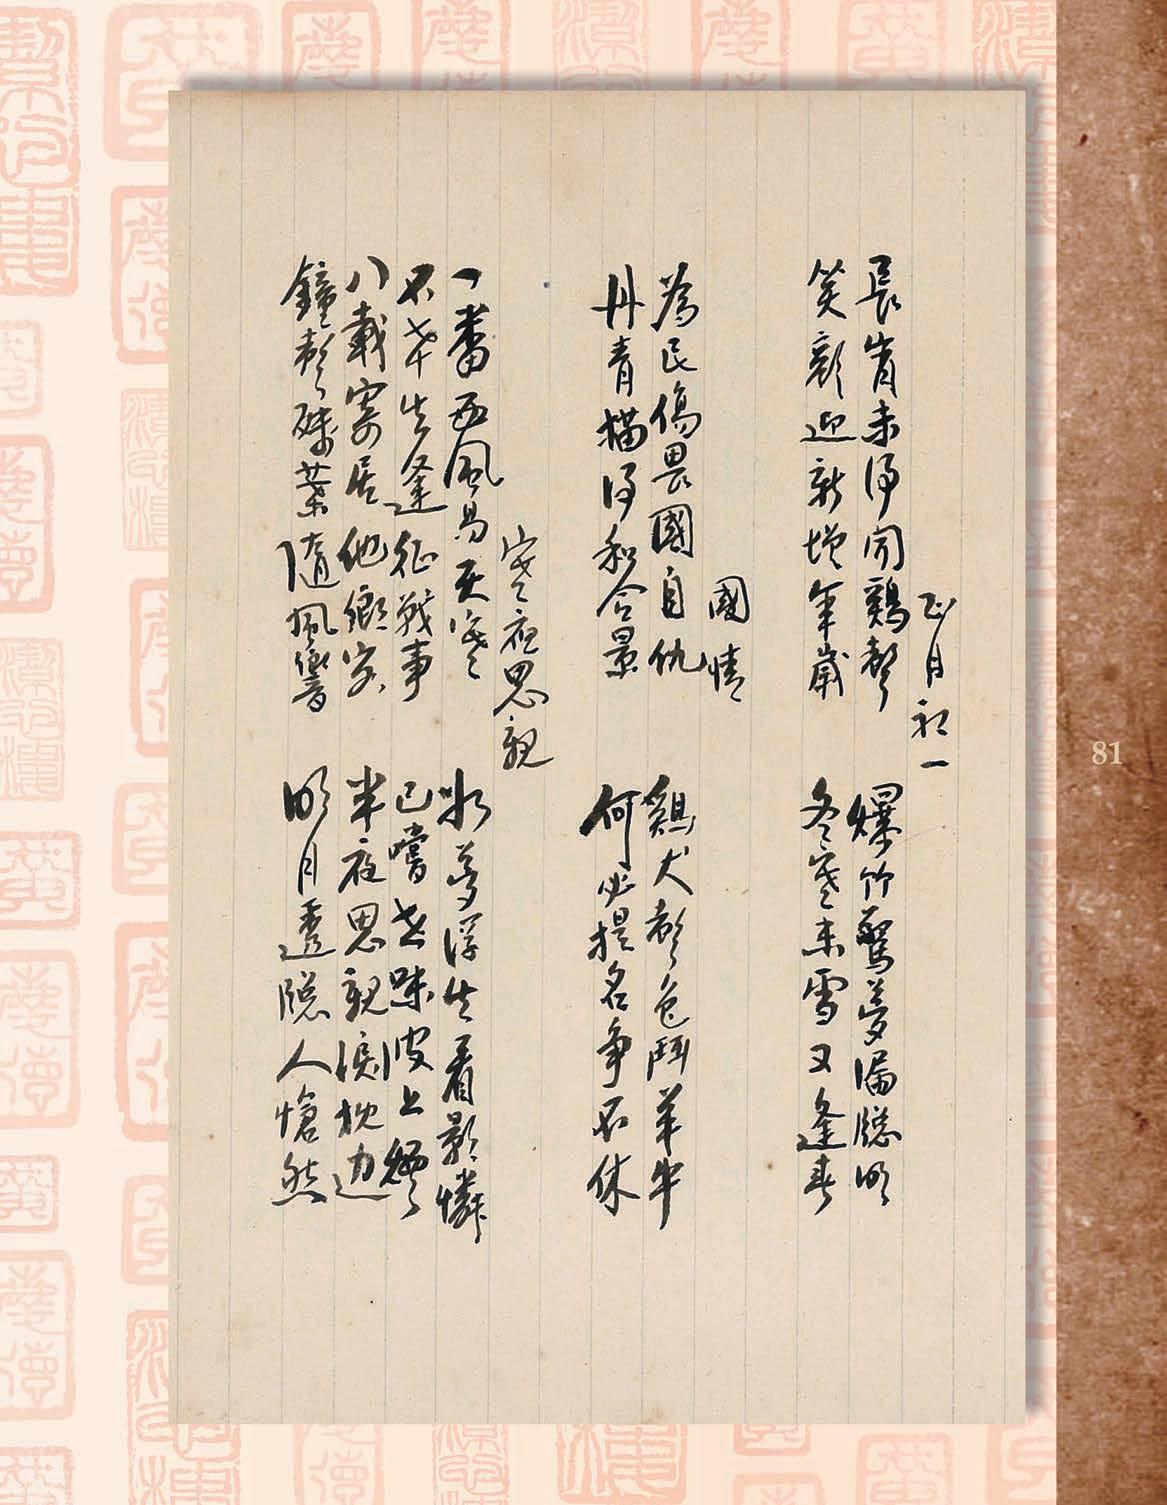 正月初一
長宵未得聞鷄聲 爆竹驚夢漏牕明
笑顏迎新增年歲 冬寒未雪又逢春
國情
為民傷畏國自仇 鷄犬聲色鬥羊牛
丹青描得和合景 何必提名爭不休
寒夜思親
一番西風易天寒 水夢浮生看影憐
不幸生逢征戰事 已嚐世味皮上
八載寄居他鄉客 半夜思親淚枕边
鐘聲殘葉隨風響 明月透牕人愴然
81